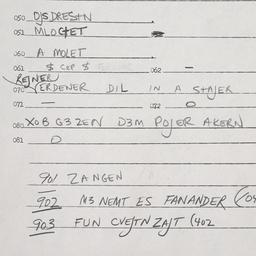 050 OJS DRESTN
051 MLOCTET
060 A MOLET
061 $ CEP $ 062 —
REJNER
070 VERDENER DIL IN A STAJER
071 — 072 O
080 XOB G3ZEN D3M POJER AKERN
081 O
901 ZANGEN
902 M3 NEMT ES FANANDER (04
903 FUN CVEJTN ZAJT (402